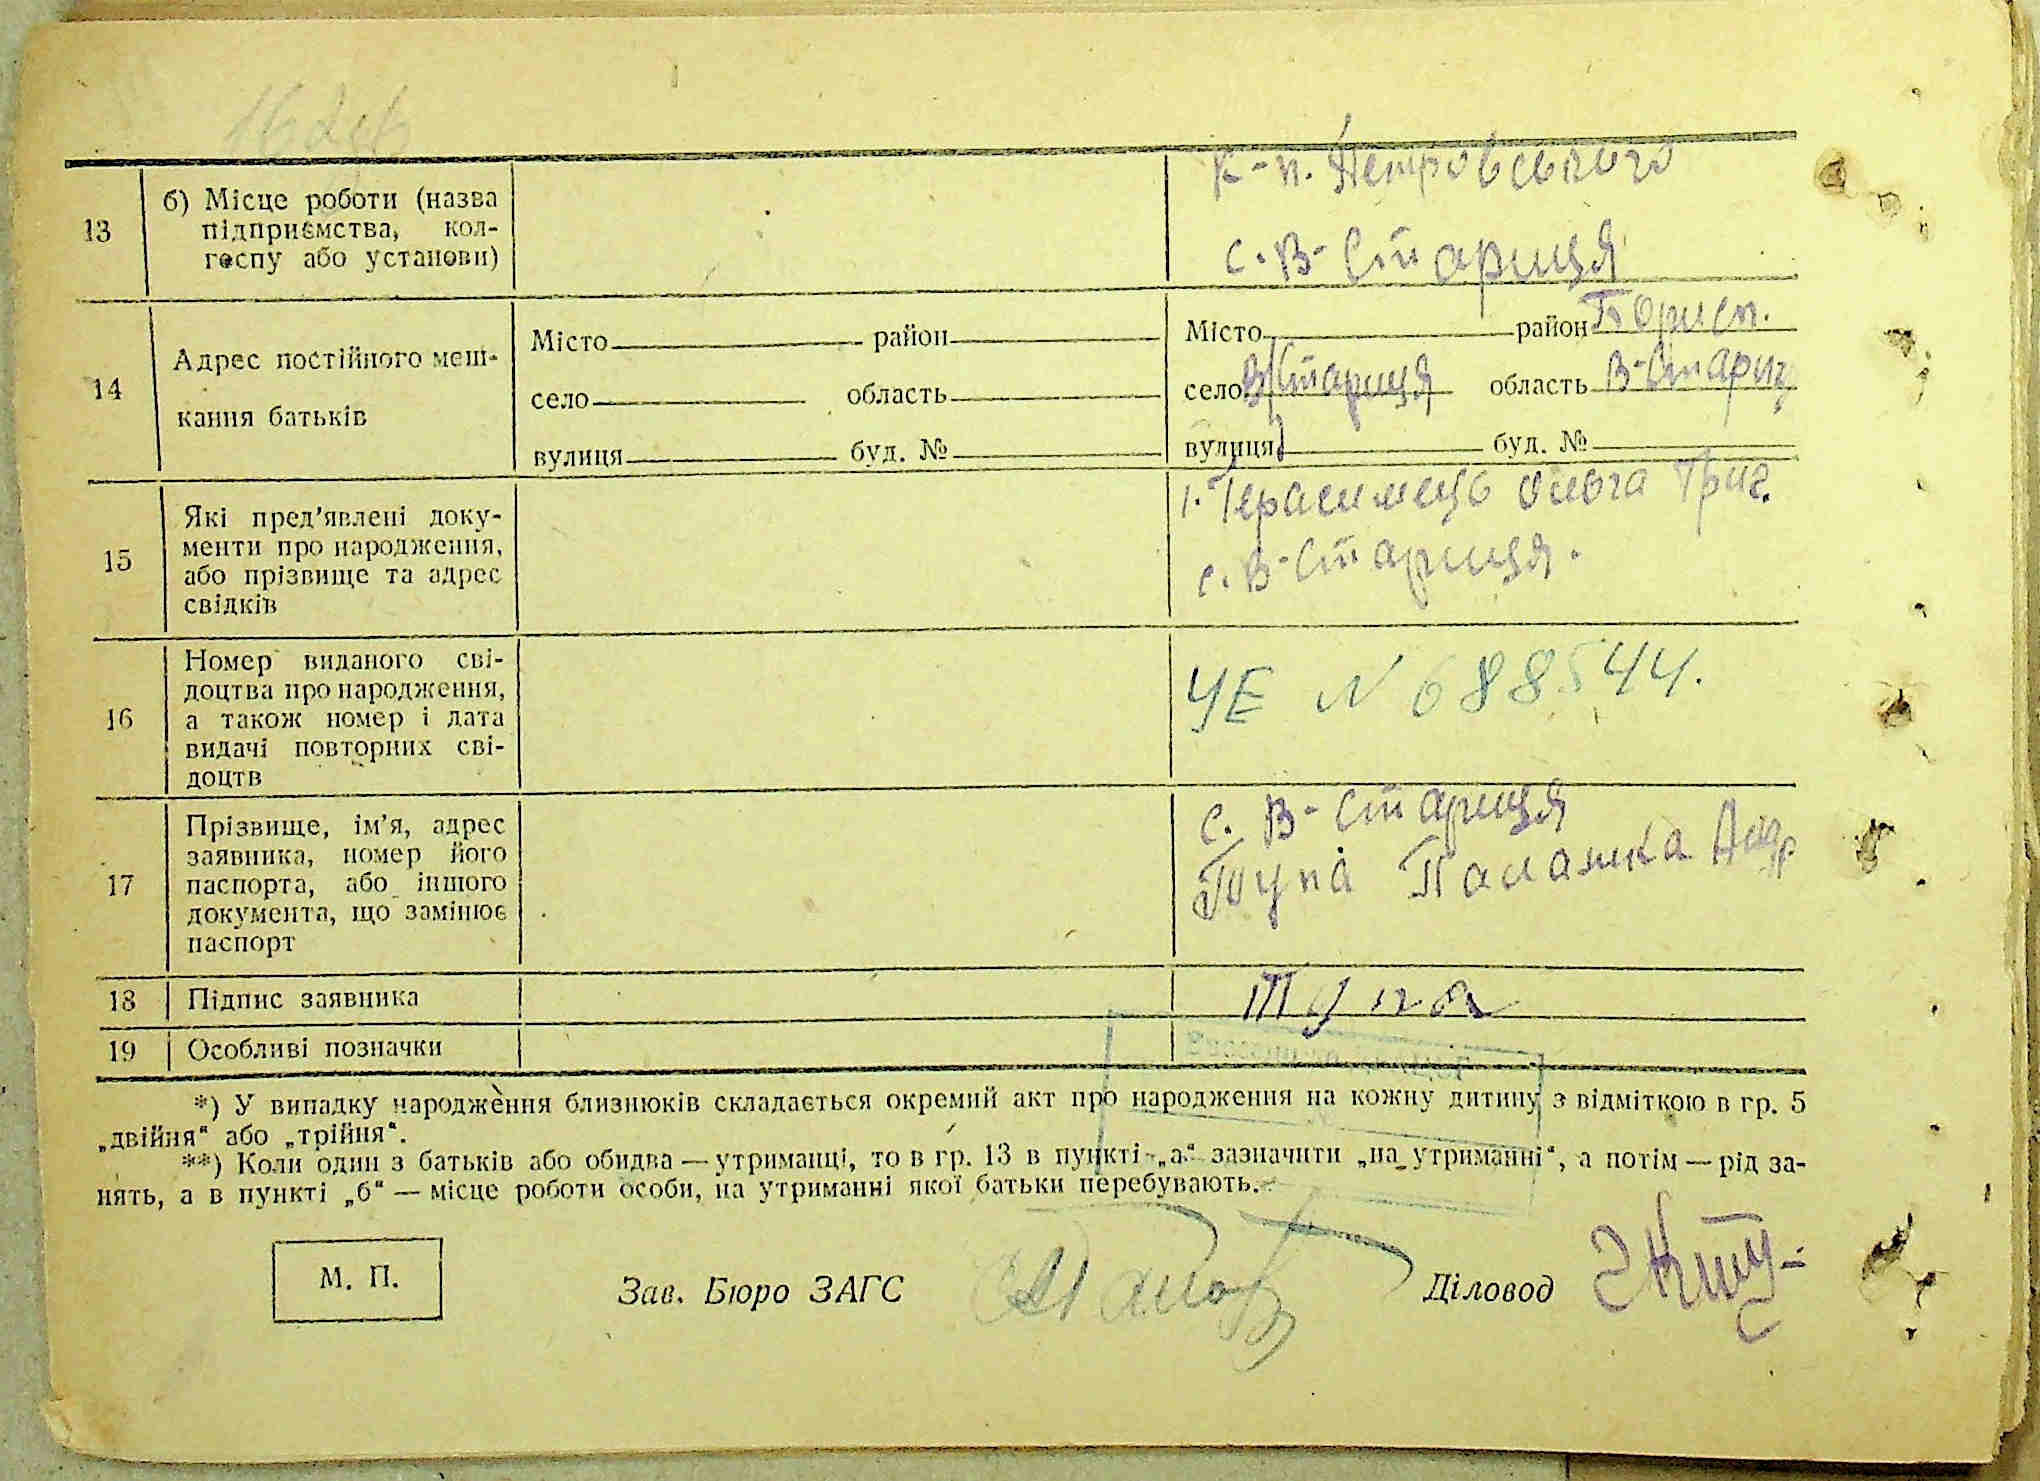 к-п. Петровського
13 б) Місце роботи (назва
підприємства, кол-
госпу або установи)
с. В-Стариця
14 Адрес постійного меш-
кання батьків
Місто район Місто район Борисп.
село область село В/Стариця область В-Стариц
вулиця буд. № вулиця буд. №
15 Які пред’явлені доку-
менти про народження,
або прізвище та адрес
свідків
1. Герасимець Ольга Григ.
с. В-Стариця.
16 Номер виданого сві-
доцтва про народження,
а також номер і дата
видачі повторних сві-
доцтв
УЕ N 688544.
17 Прізвище, ім’я, адрес
заявника, номер його
паспорта, або іншого
документа, що замінює
паспорт
с. В-Стариця
Тупа Палажка Андр
18 Підпис заявника Тупа
19 Особливі позначки
*) У випадку народження близнюків складається окремий акт про народження на кожну дитину з відміткою в гр. 5
„двійня“ або „трійня“.
**) Коли один з батьків або обидва — утриманці, то в гр. 13 в пункті „а“ зазначити „на утриманні“, а потім — рід за-
нять, а в пункті „б“ — місце роботи особи, на утриманні якої батьки перебувають.
М. П. Зав. Бюро ЗАГС Діловод